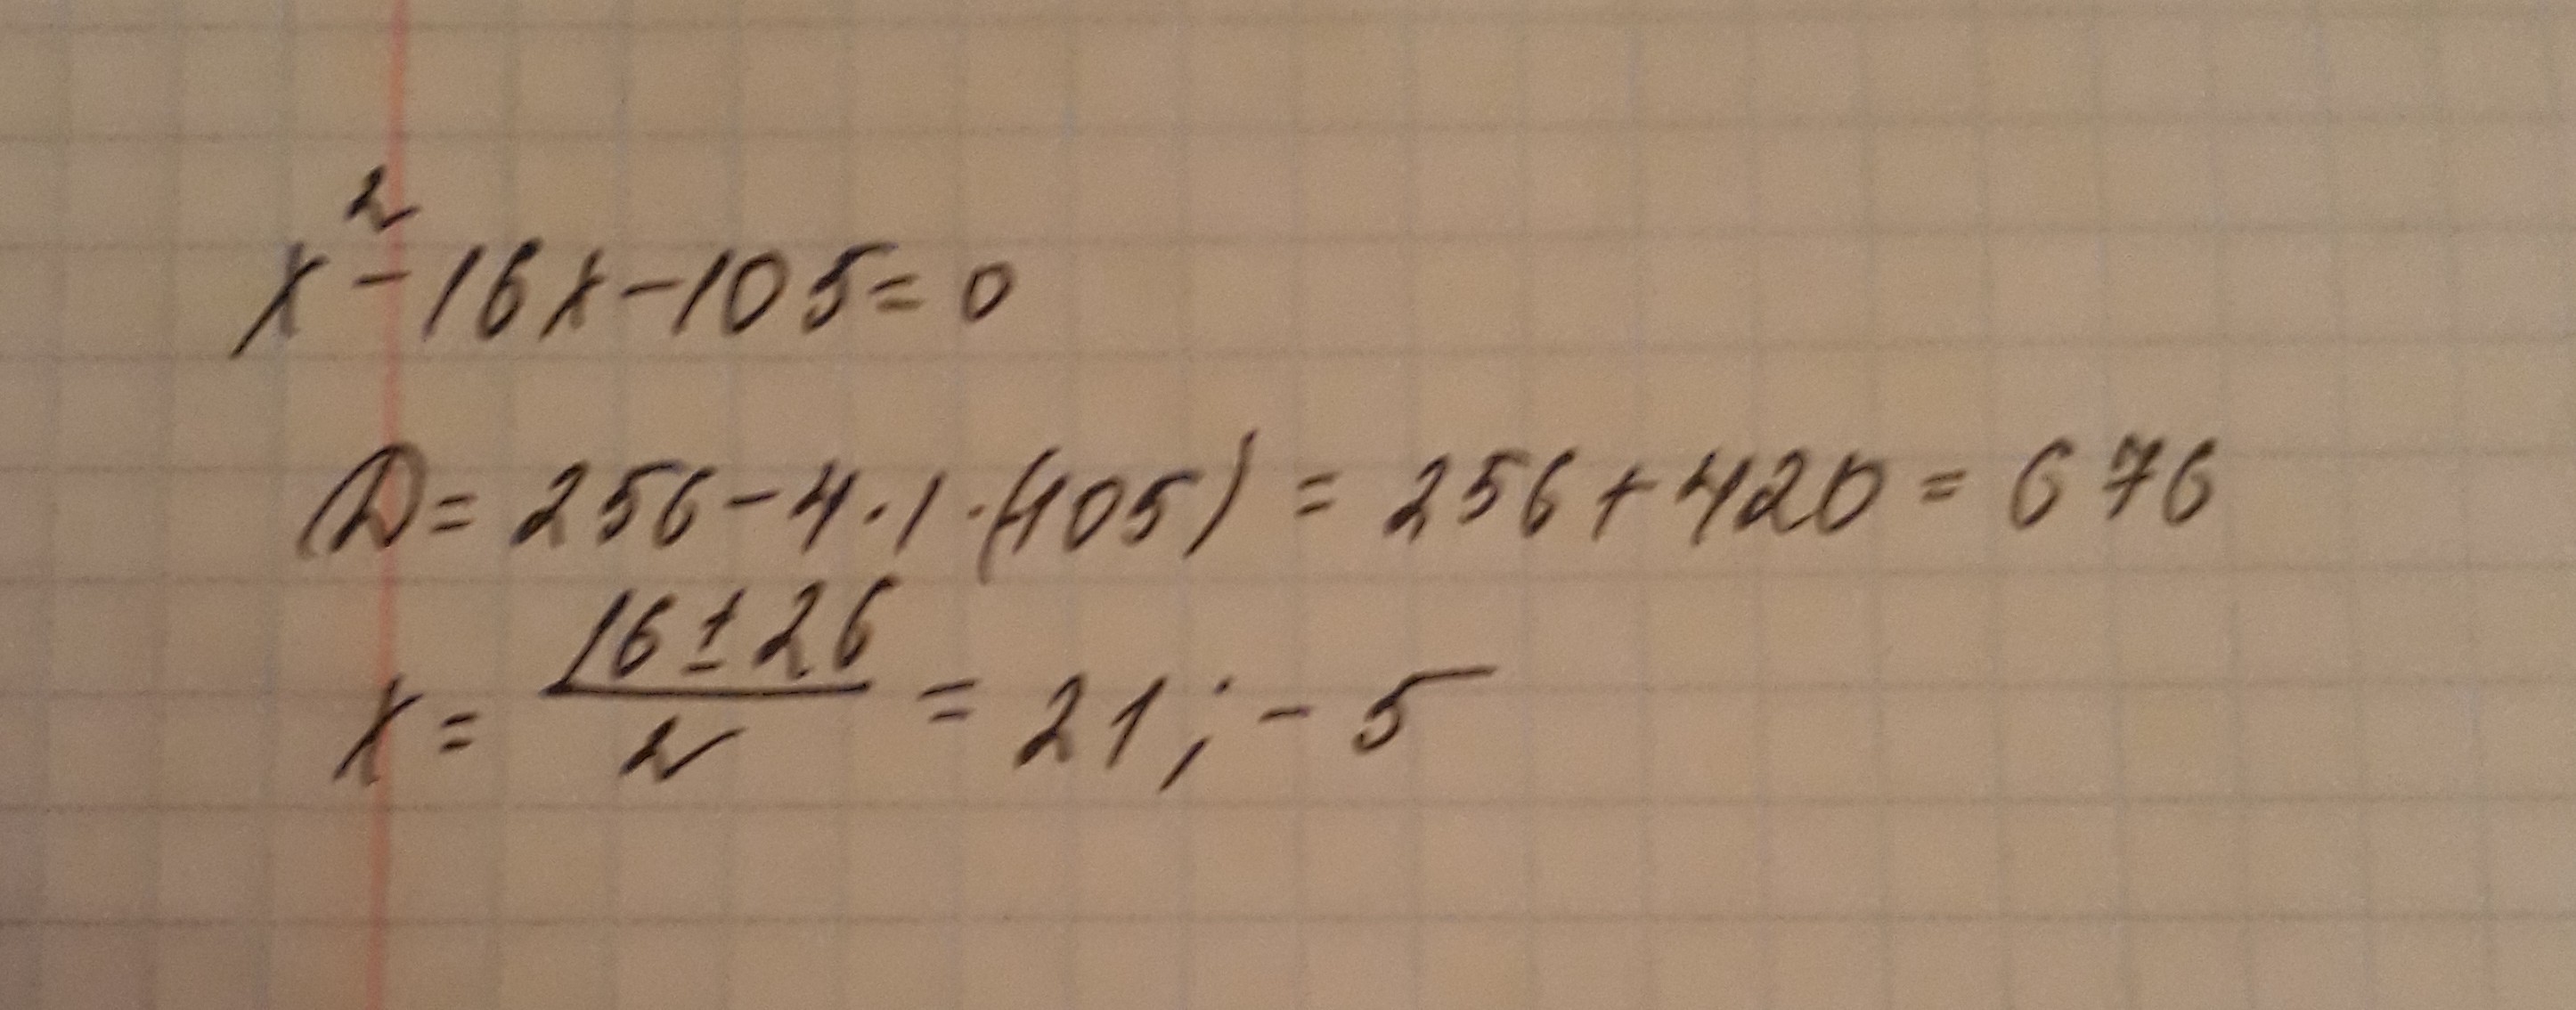 x² - 16x - 105 = 0
D = 256 - 4 · 1 · (-105) = 256 + 420 = 676
x = (16 ± 26) / 2 = 21; - 5